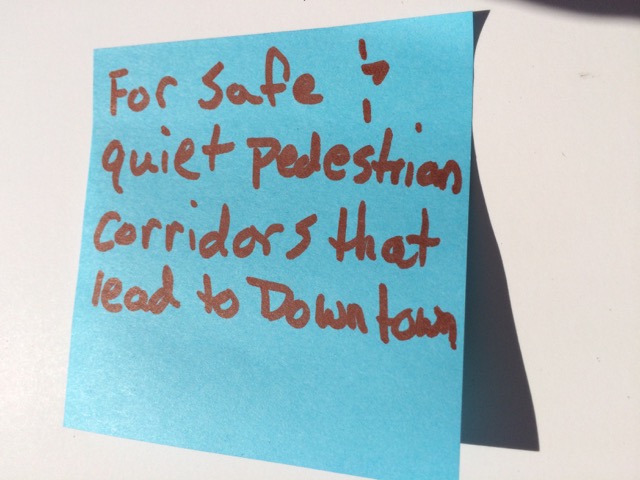 For safe &
quiet pedestrian
corridors that
lead to Downtown